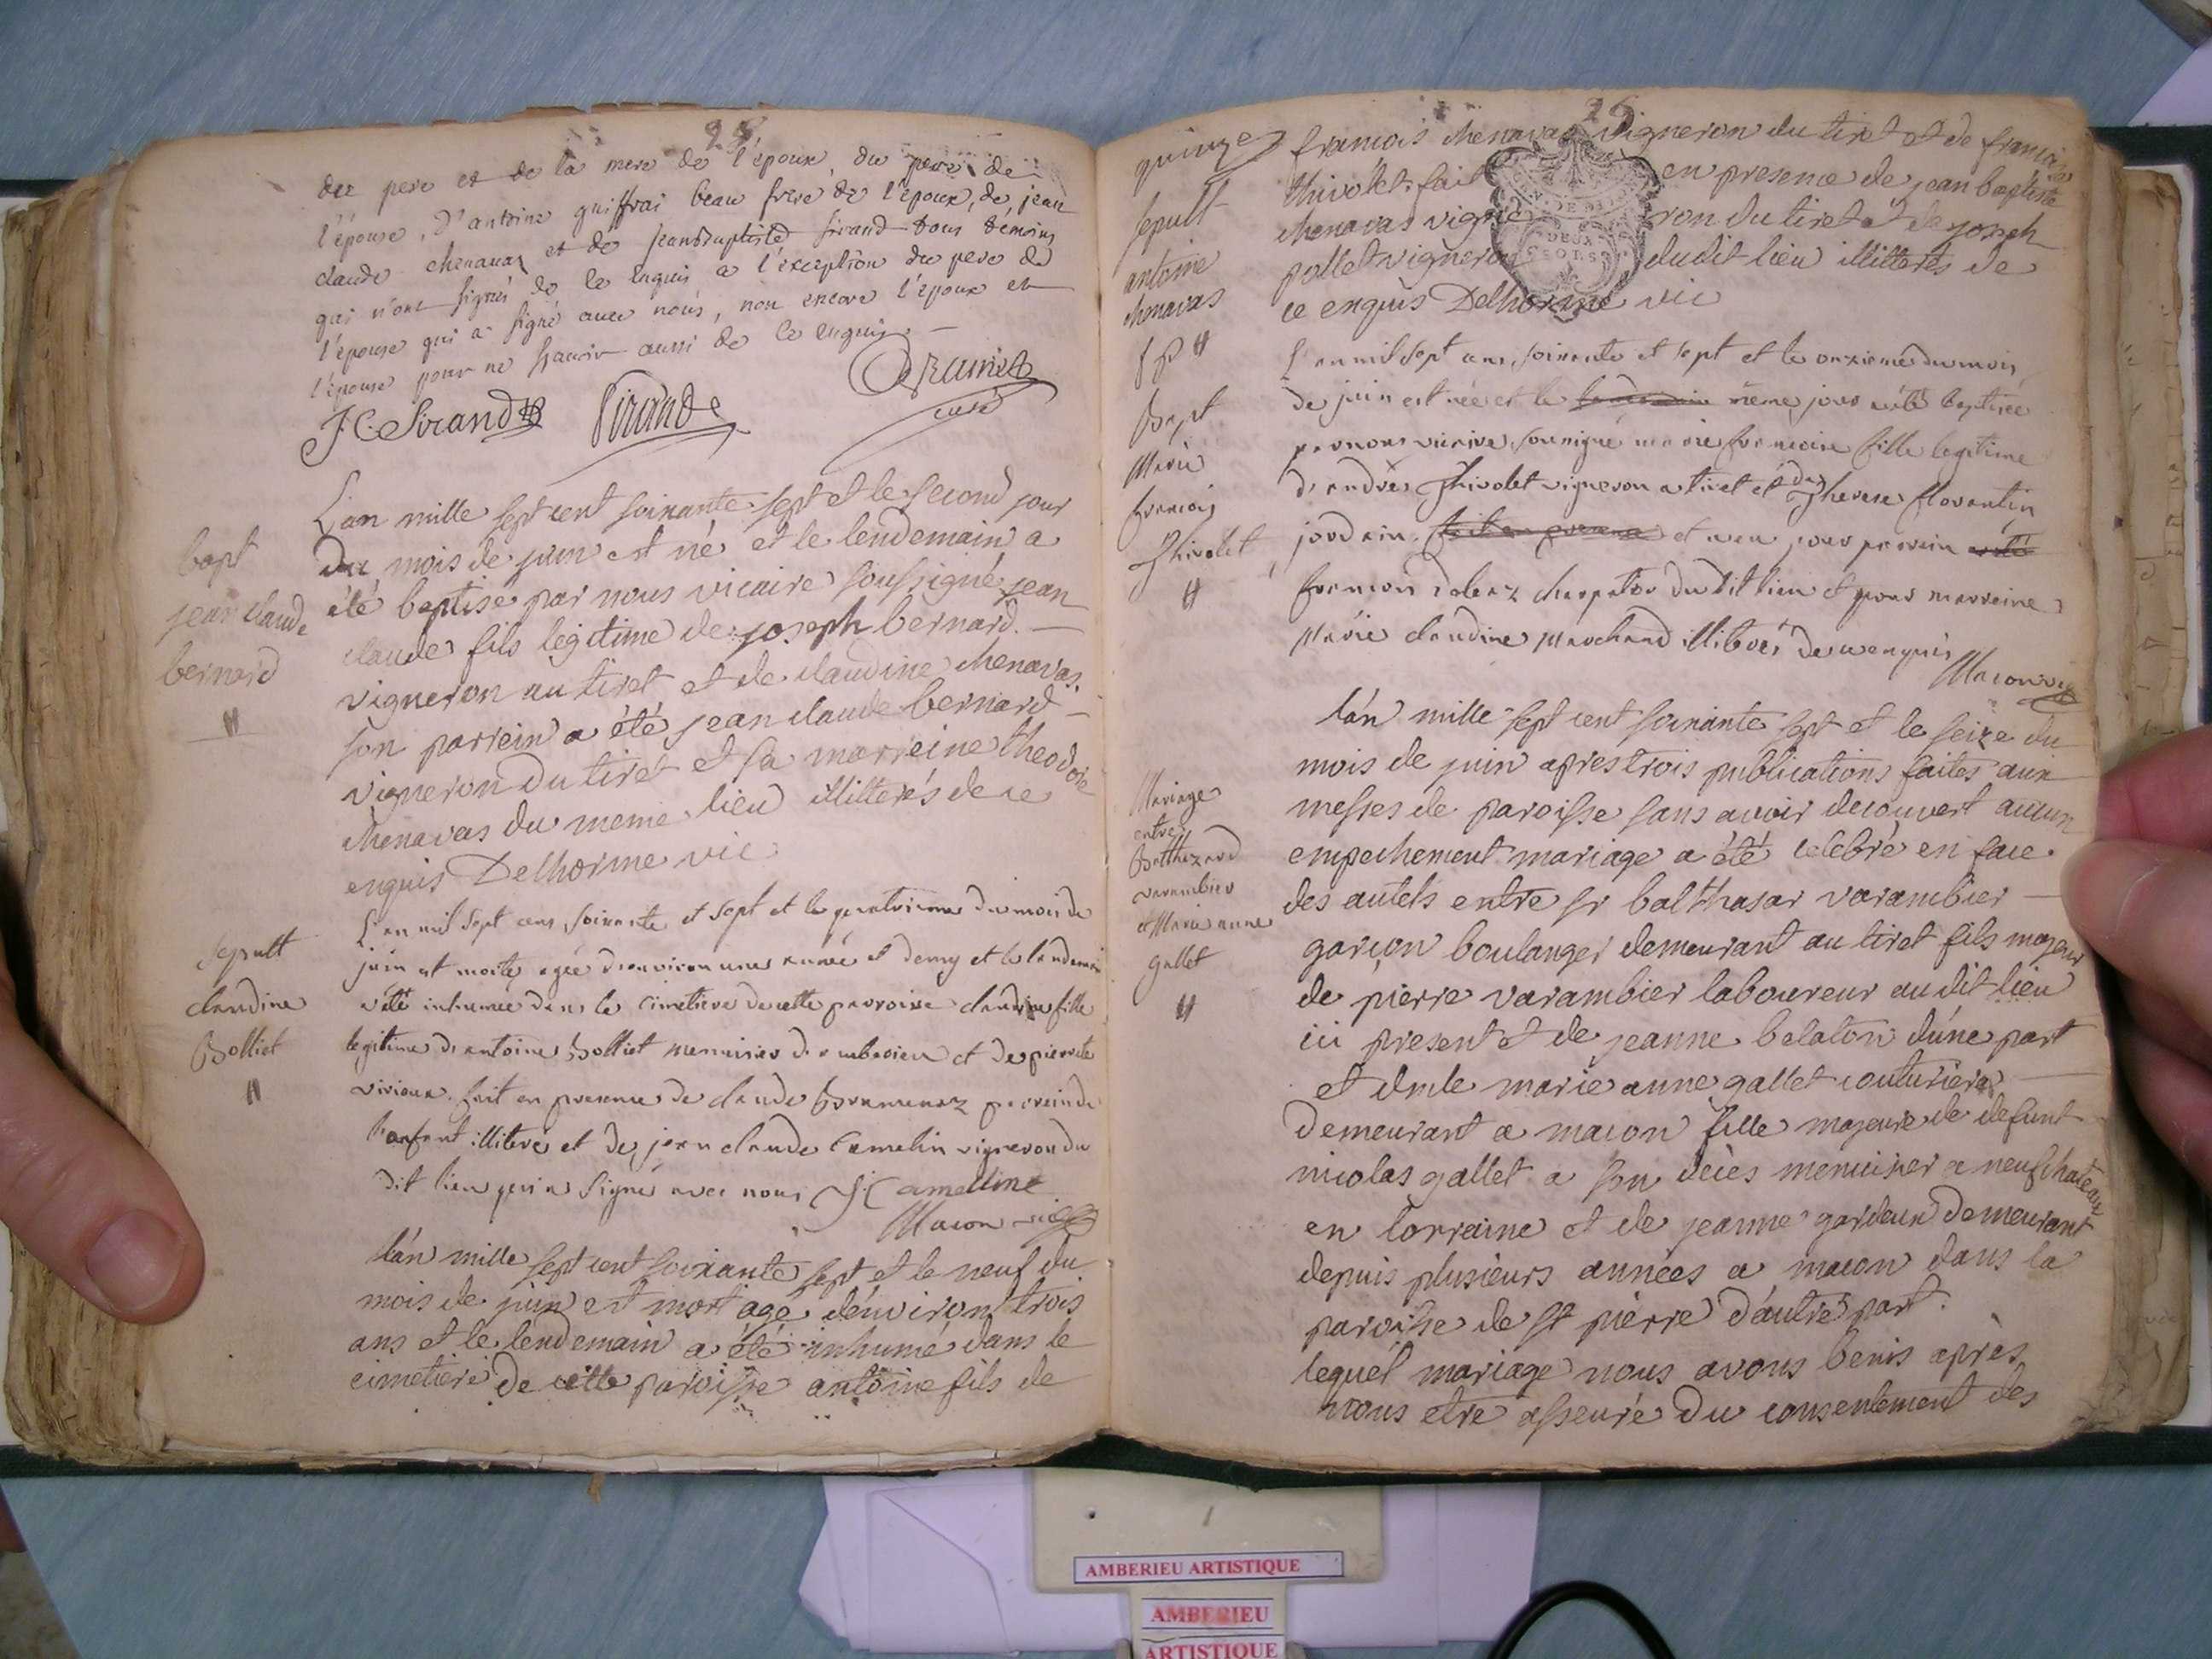 des pere et de la mere de l'époux, du pere de
l'épouse, d'antoine guiffrai beau frere de l'époux, de jean
claude chenavaz et de jeanbaptiste sirand tous témoins
qui n'ont signés de ce enquis a l'exception du pere de
l'épouse qui a signé avec nous, non encore l'époux et
l'épouse pour ne sçavoir aussi de ce enquis
J C Sirand Sirand
curé
bapt
jean claude
bernard
L'an mille sept cent soixante sept et le second jour
du mois de juin est né et le lendemain a
été baptisé par nous vicaire soussigné jean
claude fils légitime de joseph bernard
vigneron au tiret et de claudine chenavas
son parrein a été jean claude bernard
vigneron du tiret et sa marreine theodore
chenavas du meme lieu illitterés de ce
enquis Delhorme vic
sepult
claudine
Bolliet
L'an mil sept cens soixante et sept et le quatrieme du mois de
juin est morte agée d'environ une année et demy et le landemain
a été inhumée dans le cimetiere de cette parroisse claudine fille
legitime d'antoine Bolliet menuisier d'ambérieu et de pierrette
vivieux. fait en presence de claude Bramerez parrein de
l'anfant illiteré et de jean claude Camelin vigneron du
dit lieu qui a signé avec nous J C amelline
Macon vic
l'an mille sept cent soixante sept et le neuf du
mois de juin est mort agé d'environ trois
ans et le lendemain a été inhumé dans le
cimetiere de cette paroisse antoine fils de
26
quinze
sepult
antoine
chenavas
françois chenavas vigneron du tiret et de françoise
thivolet fait en presence de jean baptiste
chenavas vigneron du tiret et de joseph
pollet vigneron dudit lieu illitterés de
ce enquis Delhorme vic
Bapt
Marie
françois
Thivolet
L'an mil sept cens soixante et sept et le onzieme du mois
de juin est née et le même jour a été baptisée
par nous vicaire soussigné marie françoise fille legitime
d'andré Thivolet vigneron a tiret et de Therese florentin
jourdain. et a eu pour parrein
françois charpatier du dit lieu et pour marreine
Marie claudine Marchand illiterés de ce enquis
Macon vic
Mariage
entre
Balthazard
varambier
et Marie anne
gallet
l'an mille sept cent soixante sept et le seize du
mois de juin apres trois publications faites aux
messes de paroisse sans avoir decouvert aucun
empechement mariage a été celebré en face
des autels entre sr balthasar varambier
garçon boulanger demeurant au tiret fils majeur
de pierre varambier laboureur au dit lieu
ici present et de jeanne belaton d'une part
et dmle marie anne gallet couturiere
demeurant a macon fille majeure de defunt
nicolas gallet a son décès menuisier a neufchateau
en lorraine et de jeanne gardeux demeurant
depuis plusieurs années a macon dans la
paroisse de st pierre d'autre part.
lequel mariage nous avons benis après
nous etre asseuré du consentement des
AMBERIEU ARTISTIQUE
AMBERIEU
ARTISTIQUE